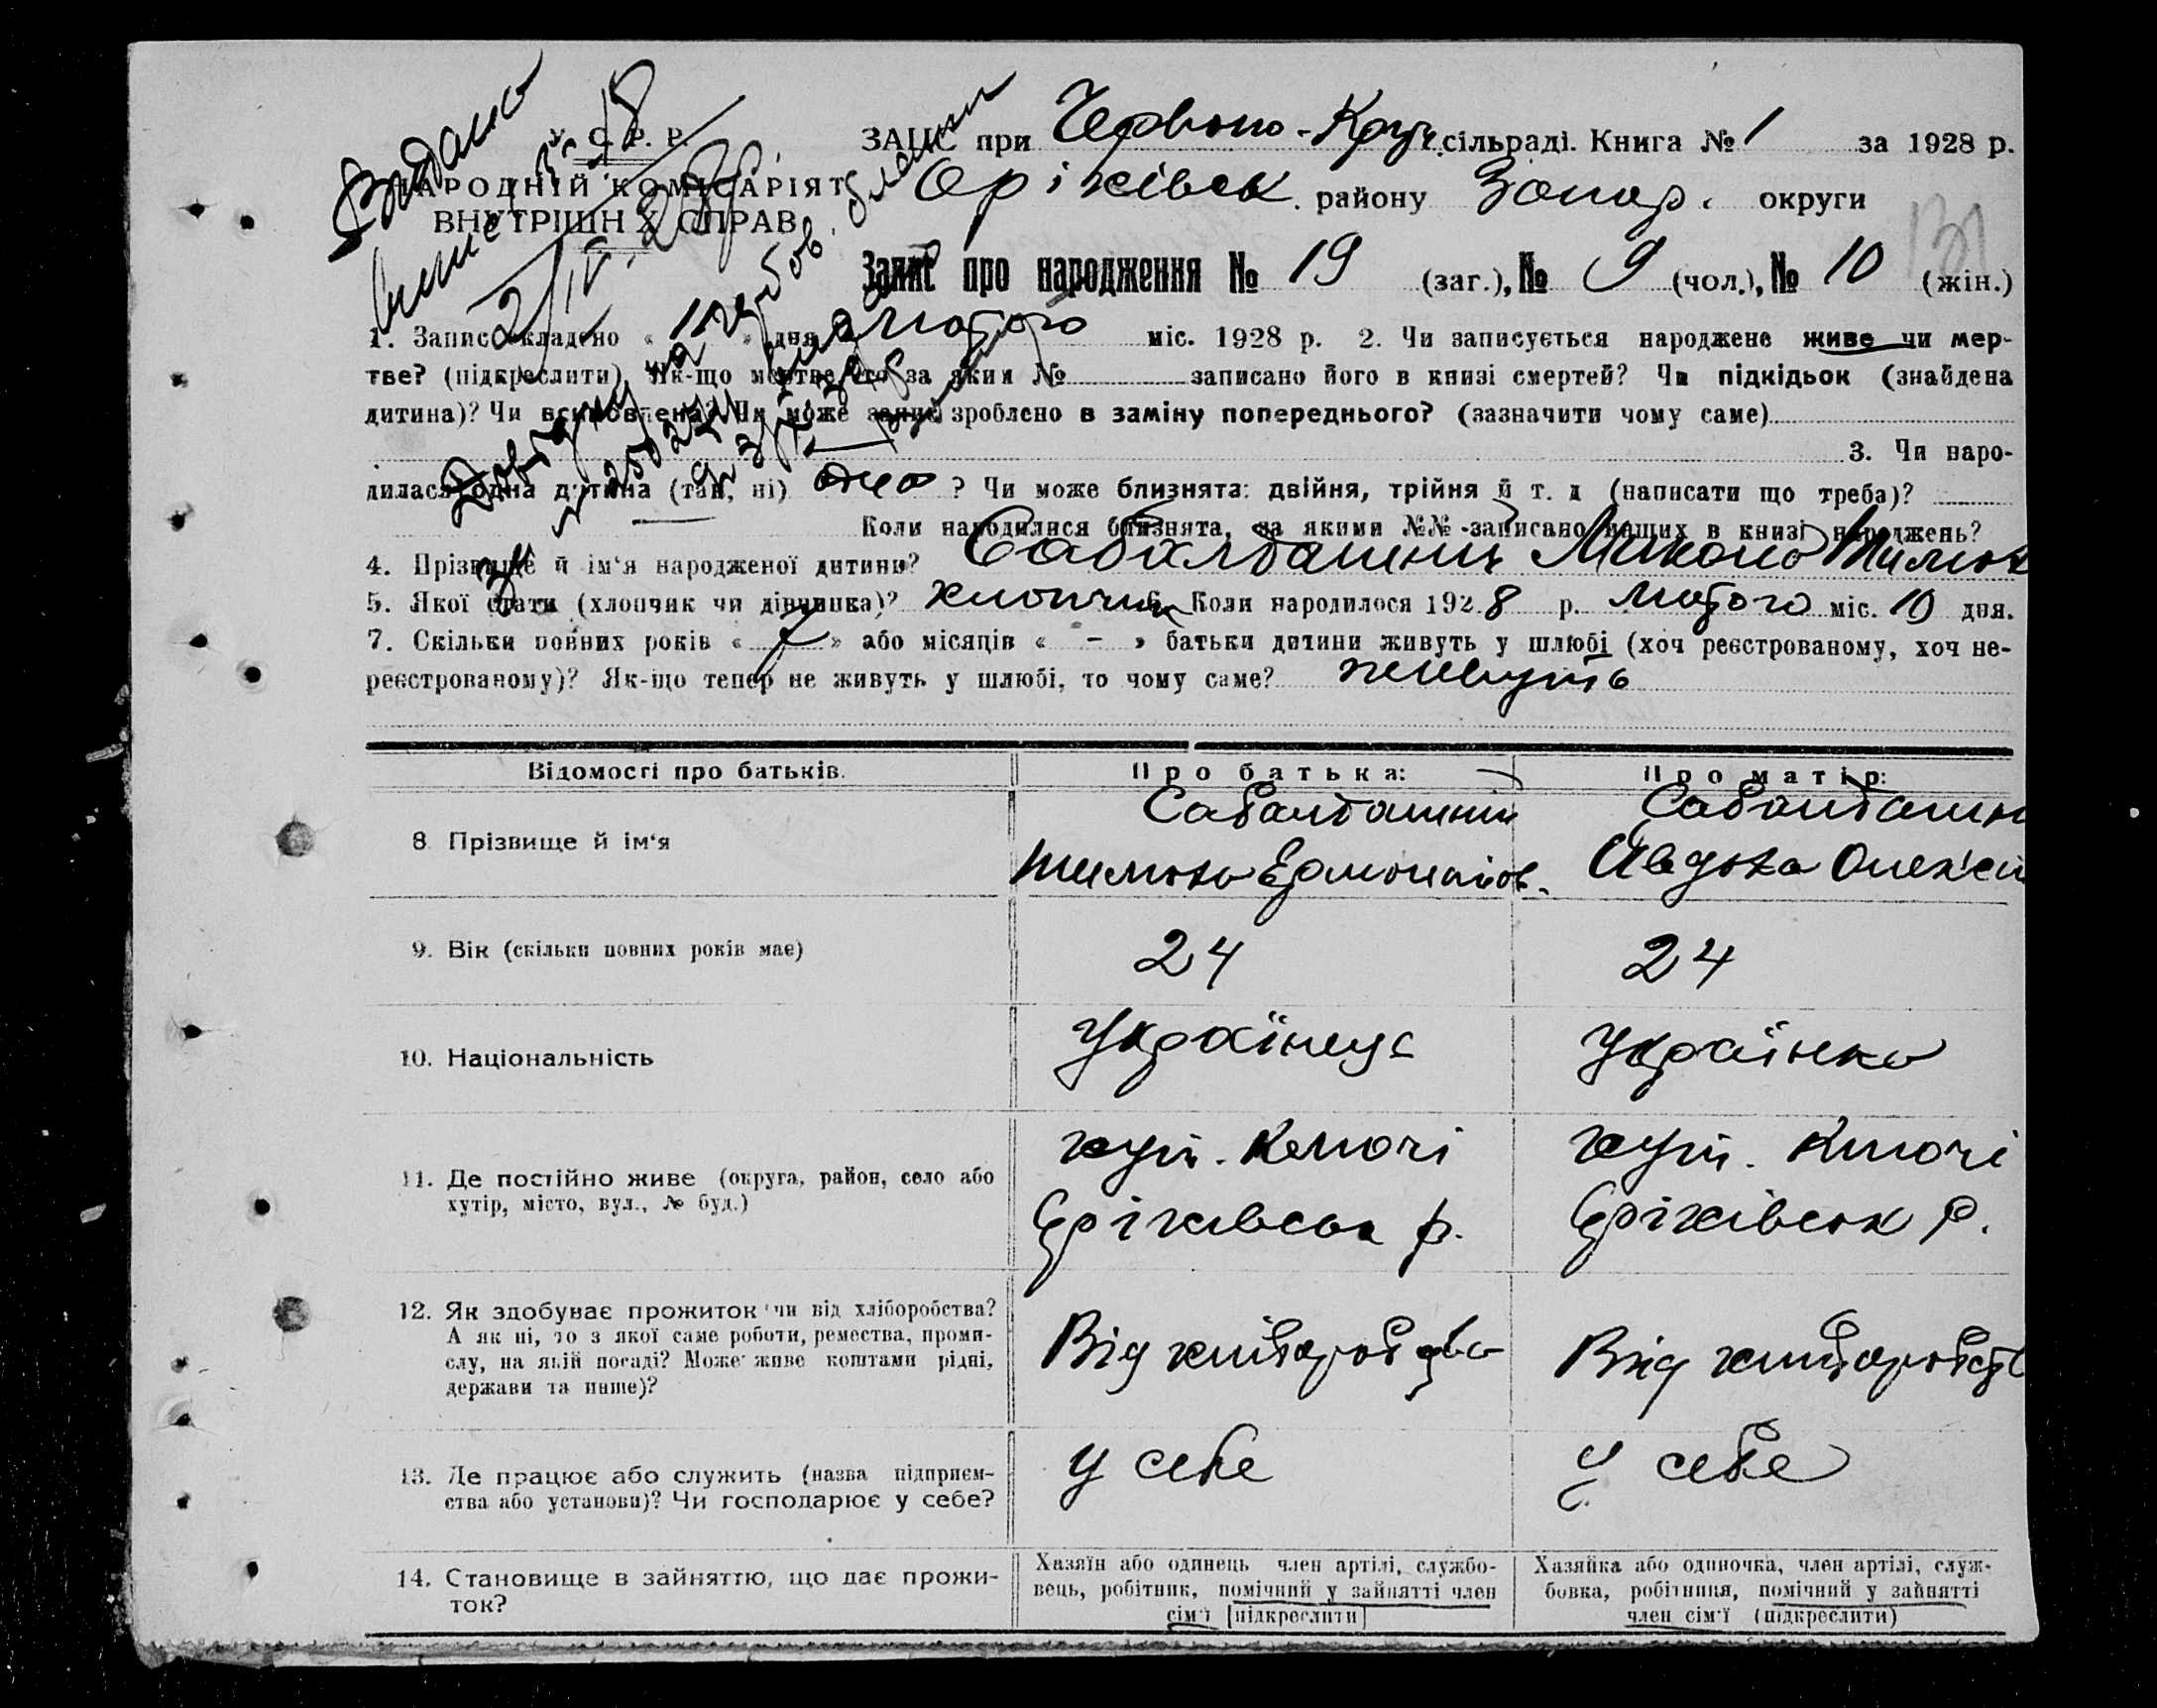 У. С. Р. Р.
НАРОДНІЙ КОМІСАРІЯТ
ВНУТРІШН Х СПРАВ
Видано
ЗАЦС при Червоно-Крут. сільраді. Книга № 1 за 1928 р.
Оріхівск. району Запор. округи
131
Запис про народження № 19 (заг.), № 9 (чол.), № 10 (жін.)
1. Запис складено « 11 » дня лютого міс. 1928 р. 2. Чи записується народжене живе чи мер-
тве? (підкреслити) Як-що мертве, то за яким № записано його в книзі смертей? Чи підкідьок (знайдена
дитина)? Чи всиновлена? Чи може запис зроблено в заміну попереднього? (зазначити чому саме)
3. Чи наро-
дилась одна дитина (так, ні) одно ? Чи може близнята: двійня, трійня й т. д (написати що треба)?
Коли народилися близнята, за якими №№ записано инших в книзі народжень?
4. Прізвище й ім'я народженої дитини? Сабалдашний Микола Тимох
5. Якої стати (хлопчик чи дівчинка)? хлопчик 6. Коли народилося 1928 р. лютого міс. 10 дня.
7. Скільки повних років « 7 » або місяців « - » батьки дитини живуть у шлюбі (хоч реєстрованому, хоч не-
реєстрованому)? Як-що тепер не живуть у шлюбі, то чому саме? живуть
Відомості про батьків. Про батька: Про матір:
8 Прізвище й ім'я
Сабалдашний
Тимоха Ермолайов.
Сабалдашн
Явдоха Олексій
9. Вік (скільки повних років має) 24 24
10. Національність Українець Українка
11. Де постійно живе (округа, район, село або
хутір, місто, вул., № буд.)
хут. Ключі
Оріхівськ р.
хут. Ключі
Оріхівськ р.
12. Як здобуває прожиток чи від хліборобства?
А як ні, то з якої саме роботи, ремества, проми-
слу, на якій посаді? Може живе коштами рідні,
держави та инше)?
Від хліборобства
Від хліборобств
13. Де працює або служить (назва підприєм-
ства або установи)? Чи господарює у себе?
У себе
У себе
14. Становище в зайняттю, що дає прожи-
ток?
Хазяїн або одинець член артілі, службо-
вець, робітник, помічний у зайнятті член
сім'ї (підкреслити)
Хазяйка або одиночка, член артілі, служ-
бовка, робітниця, помічний у зайнятті
член сім'ї (підкреслити)